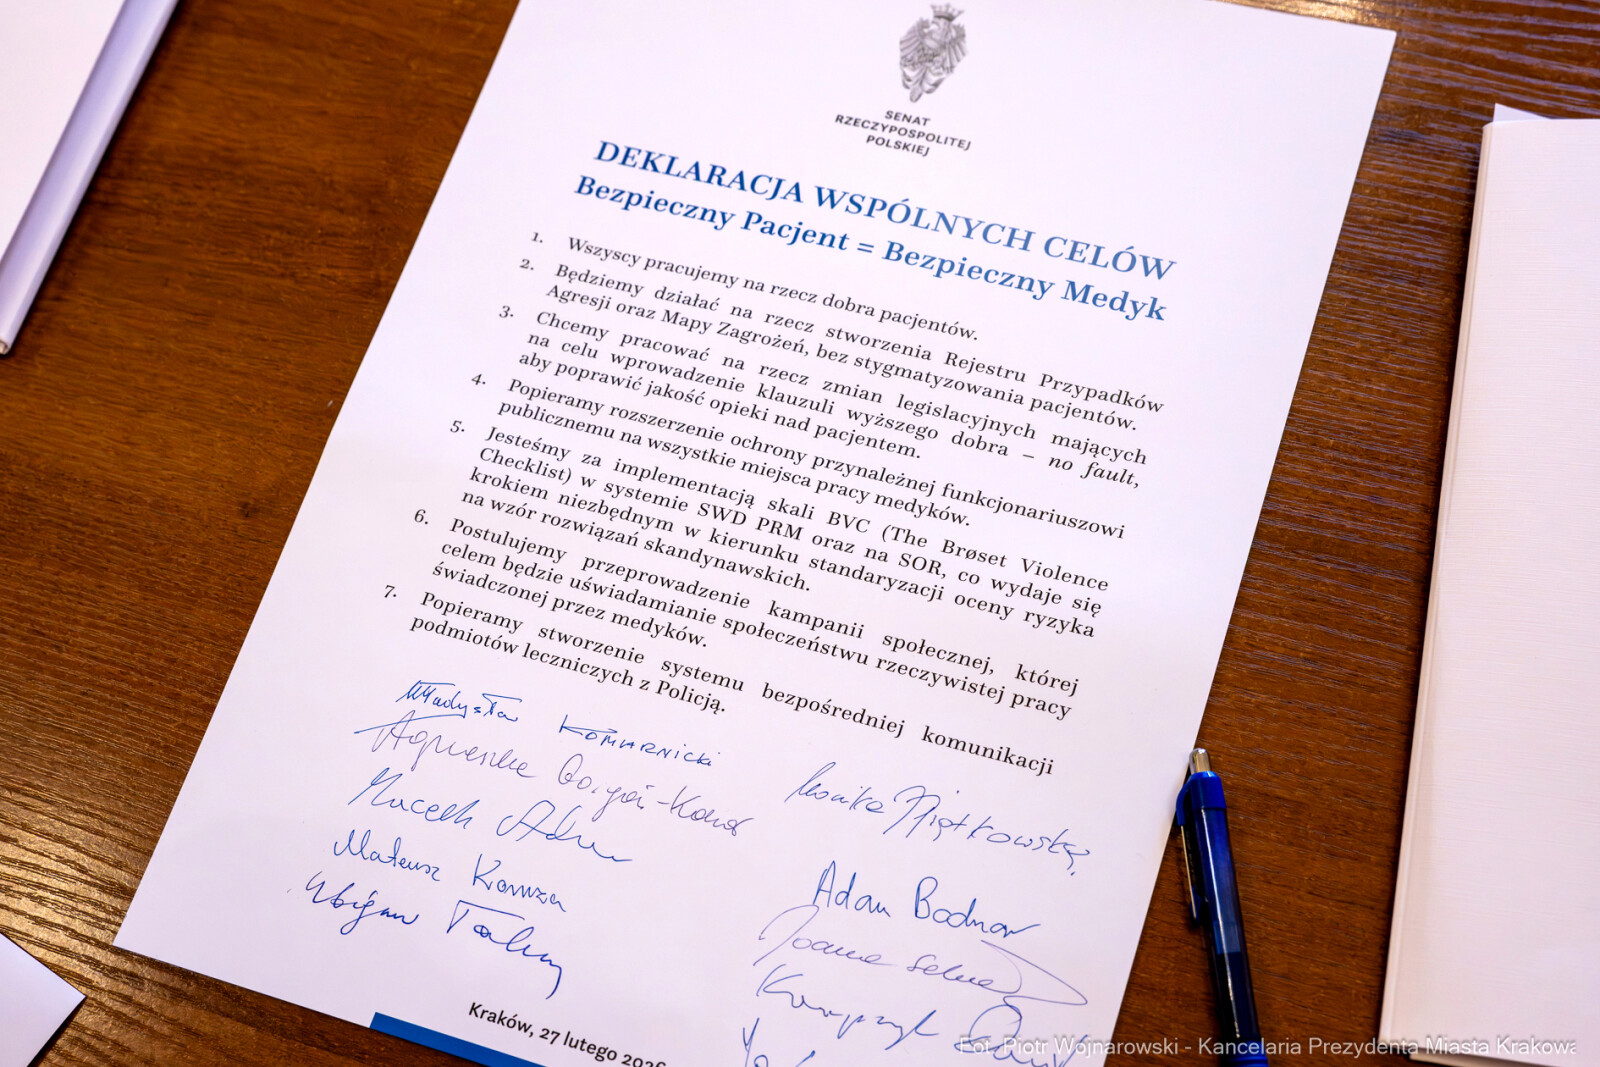 SENAT
RZECZYPOSPOLITEJ
POLSKIEJ
DEKLARACJA WSPÓLNYCH CELÓW
Bezpieczny Pacjent = Bezpieczny Medyk
1. Wszyscy pracujemy na rzecz dobra pacjentów.
2. Będziemy działać na rzecz stworzenia Rejestru Przypadków
Agresji oraz Mapy Zagrożeń, bez stygmatyzowania pacjentów.
3. Chcemy pracować na rzecz zmian legislacyjnych mających
na celu wprowadzenie klauzuli wyższego dobra – no fault,
aby poprawić jakość opieki nad pacjentem.
4. Popieramy rozszerzenie ochrony przynależnej funkcjonariuszowi
publicznemu na wszystkie miejsca pracy medyków.
5. Jesteśmy za implementacją skali BVC (The Brøset Violence
Checklist) w systemie SWD PRM oraz na SOR, co wydaje się
krokiem niezbędnym w kierunku standaryzacji oceny ryzyka
na wzór rozwiązań skandynawskich.
6. Postulujemy przeprowadzenie kampanii społecznej, której
celem będzie uświadamianie społeczeństwu rzeczywistej pracy
świadczonej przez medyków.
7. Popieramy stworzenie systemu bezpośredniej komunikacji
podmiotów leczniczych z Policją.
Władysław Komarnicki
Agnieszka
Monika Piątkowska
Mateusz
Adam Bodnar
Joanna
Kraków, 27 lutego 2026
Fot. Piotr Wojnarowski - Kancelaria Prezydenta Miasta Krakowa